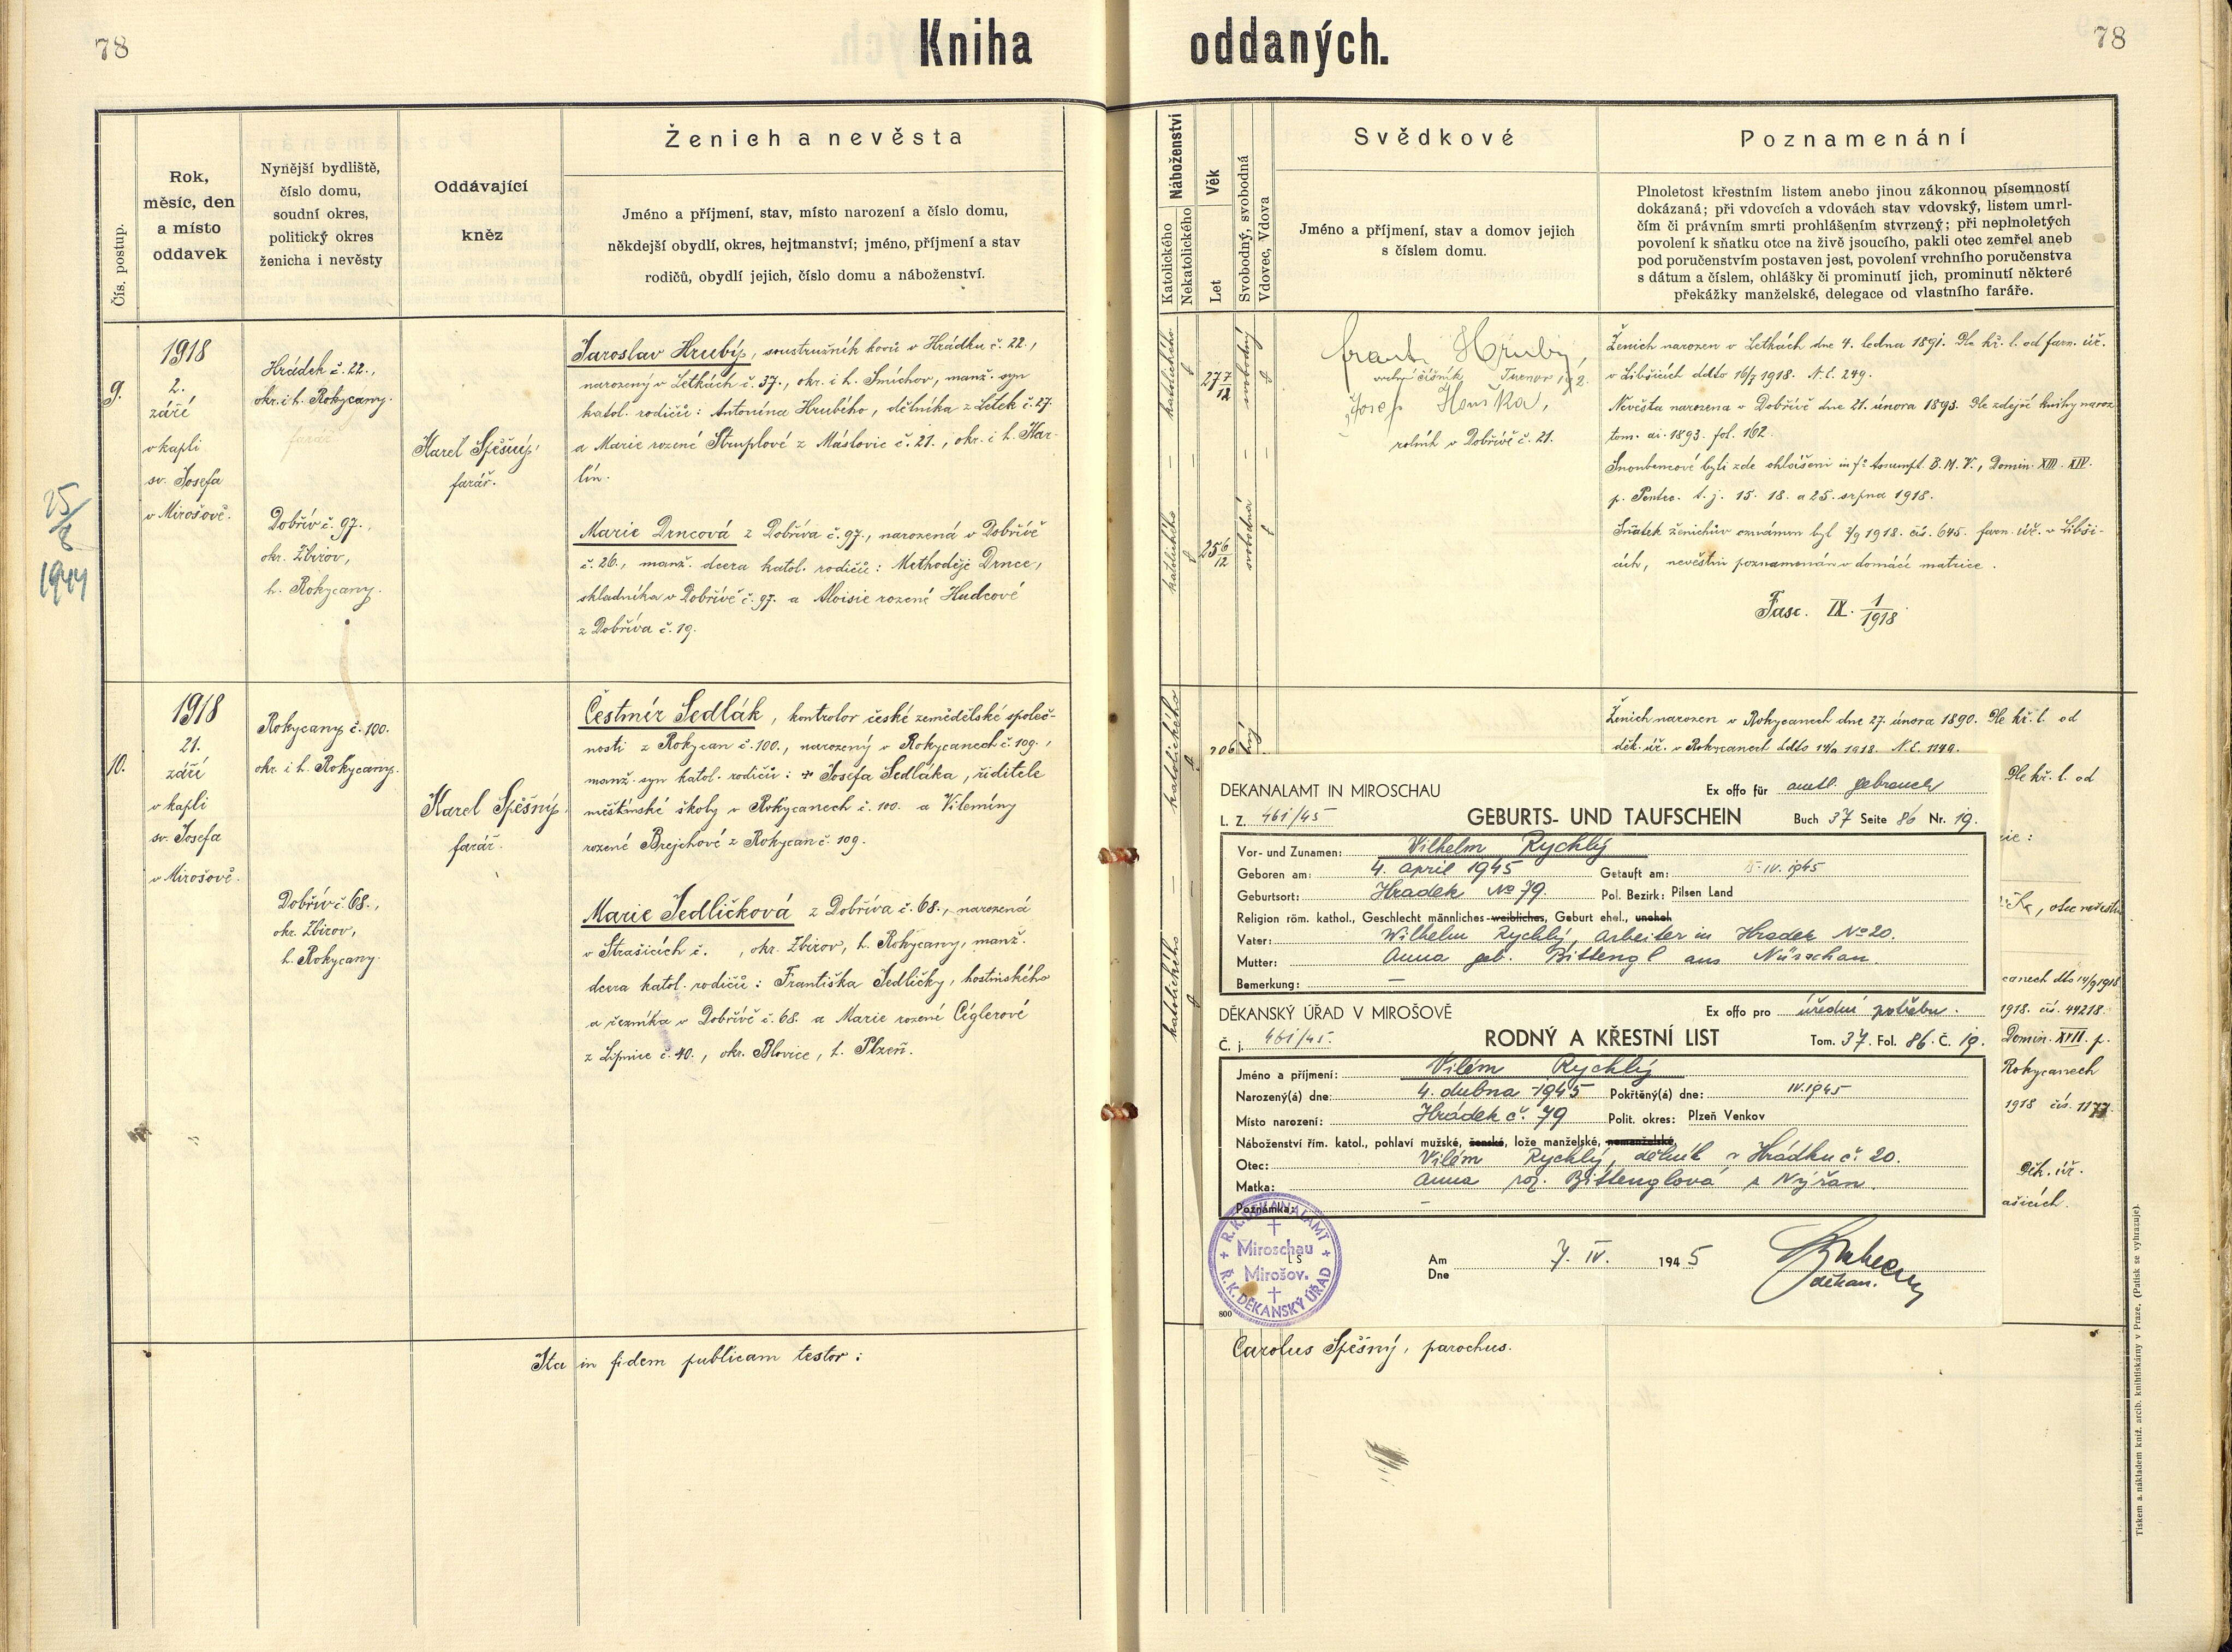 78
Kniha
oddaných.
78
Čís. postup.
Rok,
měsíc, den
a místo
oddavek
Nynější bydliště,
číslo domu,
soudní okres,
politický okres
ženicha i nevěsty
Oddávající
kněz
Ženich a nevěsta
Jméno a příjmení, stav, místo narození a číslo domu,
někdejší obydlí, okres, hejtmanství; jméno, příjmení a stav
rodičů, obydlí jejich, číslo domu a náboženství.
Náboženství
Katolického
Nekatolického
Věk
Let
Svobodný, svobodná
Vdovec, Vdova
Svědkové
Jméno a příjmení, stav a domov jejich
s číslem domu.
Poznamenání
Plnoletost křestním listem anebo jinou zákonnou písemností
dokázaná; při vdovcích a vdovách stav vdovský, listem umrl-
čím či právním smrti prohlášením stvrzený; při neplnoletých
povolení k sňatku otce na živě jsoucího, pakli otec zemřel aneb
pod poručenstvím postaven jest, povolení vrchního poručenstva
s dátum a číslem, ohlášky či prominutí jich, prominutí některé
překážky manželské, delegace od vlastního faráře.
25/8
1944
9.
1918
2.
září
v kapli
sv. Josefa
v Mirošově.
Hrádek č. 22.,
okr. i h. Rokycany.
farář
Dobřív č. 97.,
okr. Zbirov,
h. Rokycany.
Karel Spěšný,
farář.
Jaroslav Hrubý, soustružník kovů v Hrádku č. 22.,
narozený v Letkách č. 37., okr. i h. Smíchov, manž. syn
katol. rodičů: Antonína Hrubého, dělníka z Letek č. 27.
a Marie rozené Struplové z Máslovic č. 21., okr. i h. Kar-
lín.
Marie Drncová z Dobříva č. 97., narozená v Dobřívě
č. 26., manž. dcera katol. rodičů: Methoděje Drnce,
skladníka v Dobřívě č. 97. a Aloisie rozené Hudcové
z Dobříva č. 19.
katolického
27 7/12
svobodný
katolického
25 6/12
svobodná
Frant. Hrubý,
Josef Houška,
rolník v Dobřívě č. 21.
Ženich narozen v Letkách dne 4. ledna 1891. Dle kř. l. od farn. úř.
v Libšicích ddto 16/7 1918. N. E. 249.
Nevěsta narozena v Dobřívě dne 21. února 1893. Dle zdejší knihy naroz.
tom. ai. 1893. fol. 162.
Snoubencové byli zde ohlášeni in fo Assumpt. B. M. V., Domin. XIII. XIV.
p. Pentec. t. j. 15. 18. a 25. srpna 1918.
Sňatek ženichův oznámen byl 2/9 1918. čís. 645. farn. úř. v Libši-
cích, nevěstin poznamenán v domácí matrice.
Fasc. IX. 1/1918
10.
1918
21.
září
v kapli
sv. Josefa
v Mirošově.
Rokycany č. 100.
okr. i h. Rokycany.
Dobřív č. 68.,
okr. Zbirov,
h. Rokycany.
Karel Spěšný,
farář.
Čestmír Sedlák, kontrolor české zemědělské společ-
nosti z Rokycan č. 100., narozený v Rokycanech č. 109.,
manž. syn katol. rodičů: Josefa Sedláka, řiditele
měšťanské školy v Rokycanech č. 100. a Vilemíny
rozené Brejchové z Rokycan č. 109.
Marie Jedličková z Dobříva č. 68., narozená
v Strašicích č. , okr. Zbirov, h. Rokycany, manž.
dcera katol. rodičů: Františka Jedličky, hostinského
a řezníka v Dobřívě č. 68. a Marie rozené Céglerové
z Lipnice č. 40., okr. Blovice, h. Plzeň.
katolického
katolického
Ženich narozen v Rokycanech dne 27. února 1890. Dle kř. l. od
děk. úř. v Rokycanech ddto 14/9 1918. N. E. 1149.
Dle kř. l. od
, otec nevěstin
canech dto 14/9 1918
1918. čís. 44218.
Domin. XVII. p.
Rokycanech
1918 čís. 1177.
Děk. úř.
ašicích.
DEKANALAMT IN MIROSCHAU
Ex offo für amtl. gebrauch
L. Z. 461/45
GEBURTS- UND TAUFSCHEIN
Buch 37 Seite 86 Nr. 19.
Vor- und Zunamen: Vilhelm Rychlý
Geboren am: 4. april 1945 Getauft am: 5. IV. 1945
Geburtsort: Hradek No 79. Pol. Bezirk: Pilsen Land
Religion röm. kathol., Geschlecht männliches-weibliches, Geburt ehel., unehel
Vater: Wilhelm Rychlý, Arbeiter in Hradek No 20.
Mutter: Anna geb. Bittengl aus Nürschan.
Bemerkung: —
DĚKANSKÝ ÚŘAD V MIROŠOVĚ
Ex offo pro úřední potřebu.
Č. j. 461/45.
RODNÝ A KŘESTNÍ LIST
Tom. 37. Fol. 86. Č. 19.
Jméno a příjmení: Vilém Rychlý
Narozený(á) dne: 4. dubna 1945 Pokřtěný(á) dne: IV. 1945
Místo narození: Hrádek č. 79 Polit. okres: Plzeň Venkov
Náboženství řím. katol., pohlaví mužské, ženské, lože manželské, nemanželské,
Otec: Vilém Rychlý, dělník v Hrádku č. 20.
Matka: Anna roz. Bittenglová z Nýřan.
Poznámka: —
R. K. DEKANALAMT
Miroschau
LS
Mirošov.
Ř. K. DĚKANSKÝ ÚŘAD
Am
Dne
7. IV. 1945
děkan.
800
Ita in fidem publicam testor:
Carolus Spěšný, parochus.
Tiskem a nákladem kníž. arcib. knihtiskárny v Praze. (Patisk se vyhrazuje).